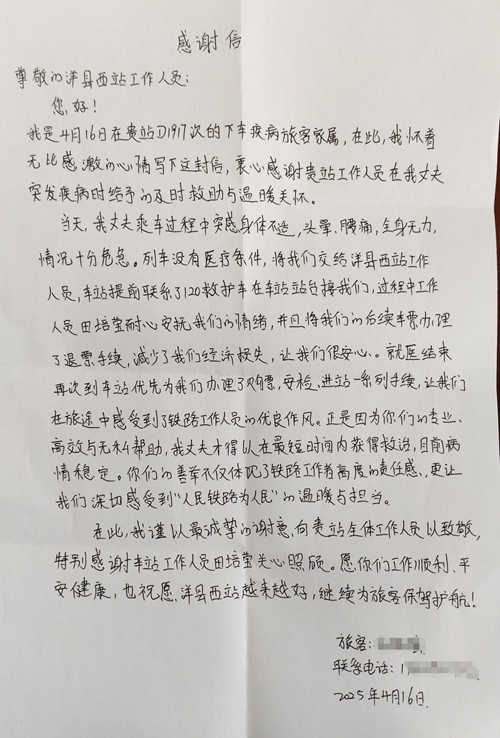 感谢信
尊敬的洋县西站工作人员:
您好!
我是4月16日在贵站D1917次的下车疾病旅客家属,在此,我怀着
无比感激的心情写下这封信,衷心感谢贵站工作人员在我丈夫
突发疾病时给予的及时救助与温暖关怀。
当天,我丈夫乘车过程中突感身体不适,头晕、腰痛,全身无力,
情况十分危急。列车没有医疗条件,将我们交给洋县西站工作
人员,车站提前联系了120救护车在车站站台接我们,过程中工作
人员田培莹耐心安抚我们的情绪,并且将我们的后续车票办理
了退票手续,减少了我们经济损失,让我们很安心。就医结束
再次到车站优先为我们办理了购票,安检、进站一系列手续,让我们
在旅途中感受到了铁路工作人员的优良作风。正是因为你们的专业、
高效与无私帮助,我丈夫才得以在最短时间内获得救治,目前病
情稳定。你们的善举不仅体现了铁路工作者高度的责任感,更让
我们深切感受到“人民铁路为人民”的温暖与担当。
在此,我谨以最诚挚的谢意,向贵站全体工作人员以致敬,
特别感谢车站工作人员田培莹关心照顾。愿你们工作顺利、平
安健康,也祝愿洋县西站越来越好,继续为旅客保驾护航!
旅客:
联系电话:1
2025年4月16日